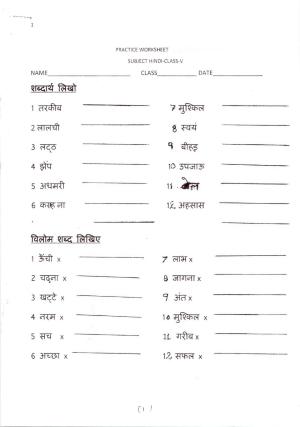 PRACTICE WORKSHEET
SUBJECT HINDI-CLASS-V
NAME CLASS DATE
शब्दार्थ लिखो
1 तरकीब 7 मुश्किल
2 लालची 8 स्वयं
3 लट्ठ 9 बीहड़
4 झेंप 10 उपजाऊ
5 अधमरी 11
6 कराहना 12 अहसास
विलोम शब्द लिखिए
1 ऊँची x 7 लाभ x
2 चढ़ना x 8 जागना x
3 खट्टे x 9 अंत x
4 नरम x 10 मुश्किल x
5 सच x 11 गरीब x
6 अच्छा x 12 सफल x
(1)